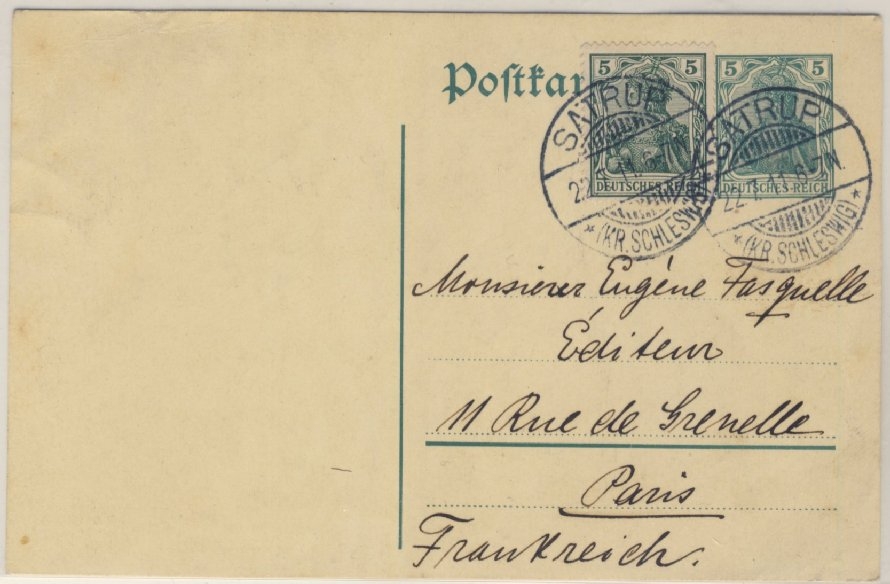 Postkar
5 5
DEUTSCHES REICH
5 5
DEUTSCHES REICH
SATRUP
11.6-7N.
* (KR.SCHLESWIG) *
SATRUP
22. .11.6-7N.
* (KR.SCHLESWIG) *
Monsieur Eugéne Fasquelle
Éditeur
11 Rue de Grenelle
Paris
Frankreich.